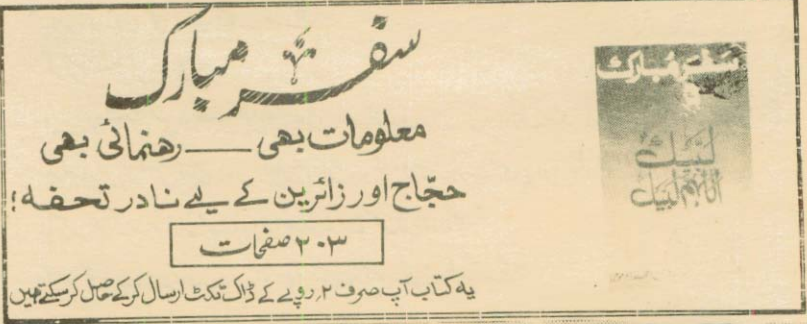 سفر مبارک
معلومات بھی ــــ رهنمائی بھی
حجّاج اور زائرین کے لیے نادر تحفہ؛
۲۰۳ صفحات
یہ کتاب آپ صرف ۲؍ روپے کے ڈاک ٹکٹ ارسال کرکے حاصل کرسکتے ھیں
سفر مبارک
لبیک
اللّٰهم لبیک